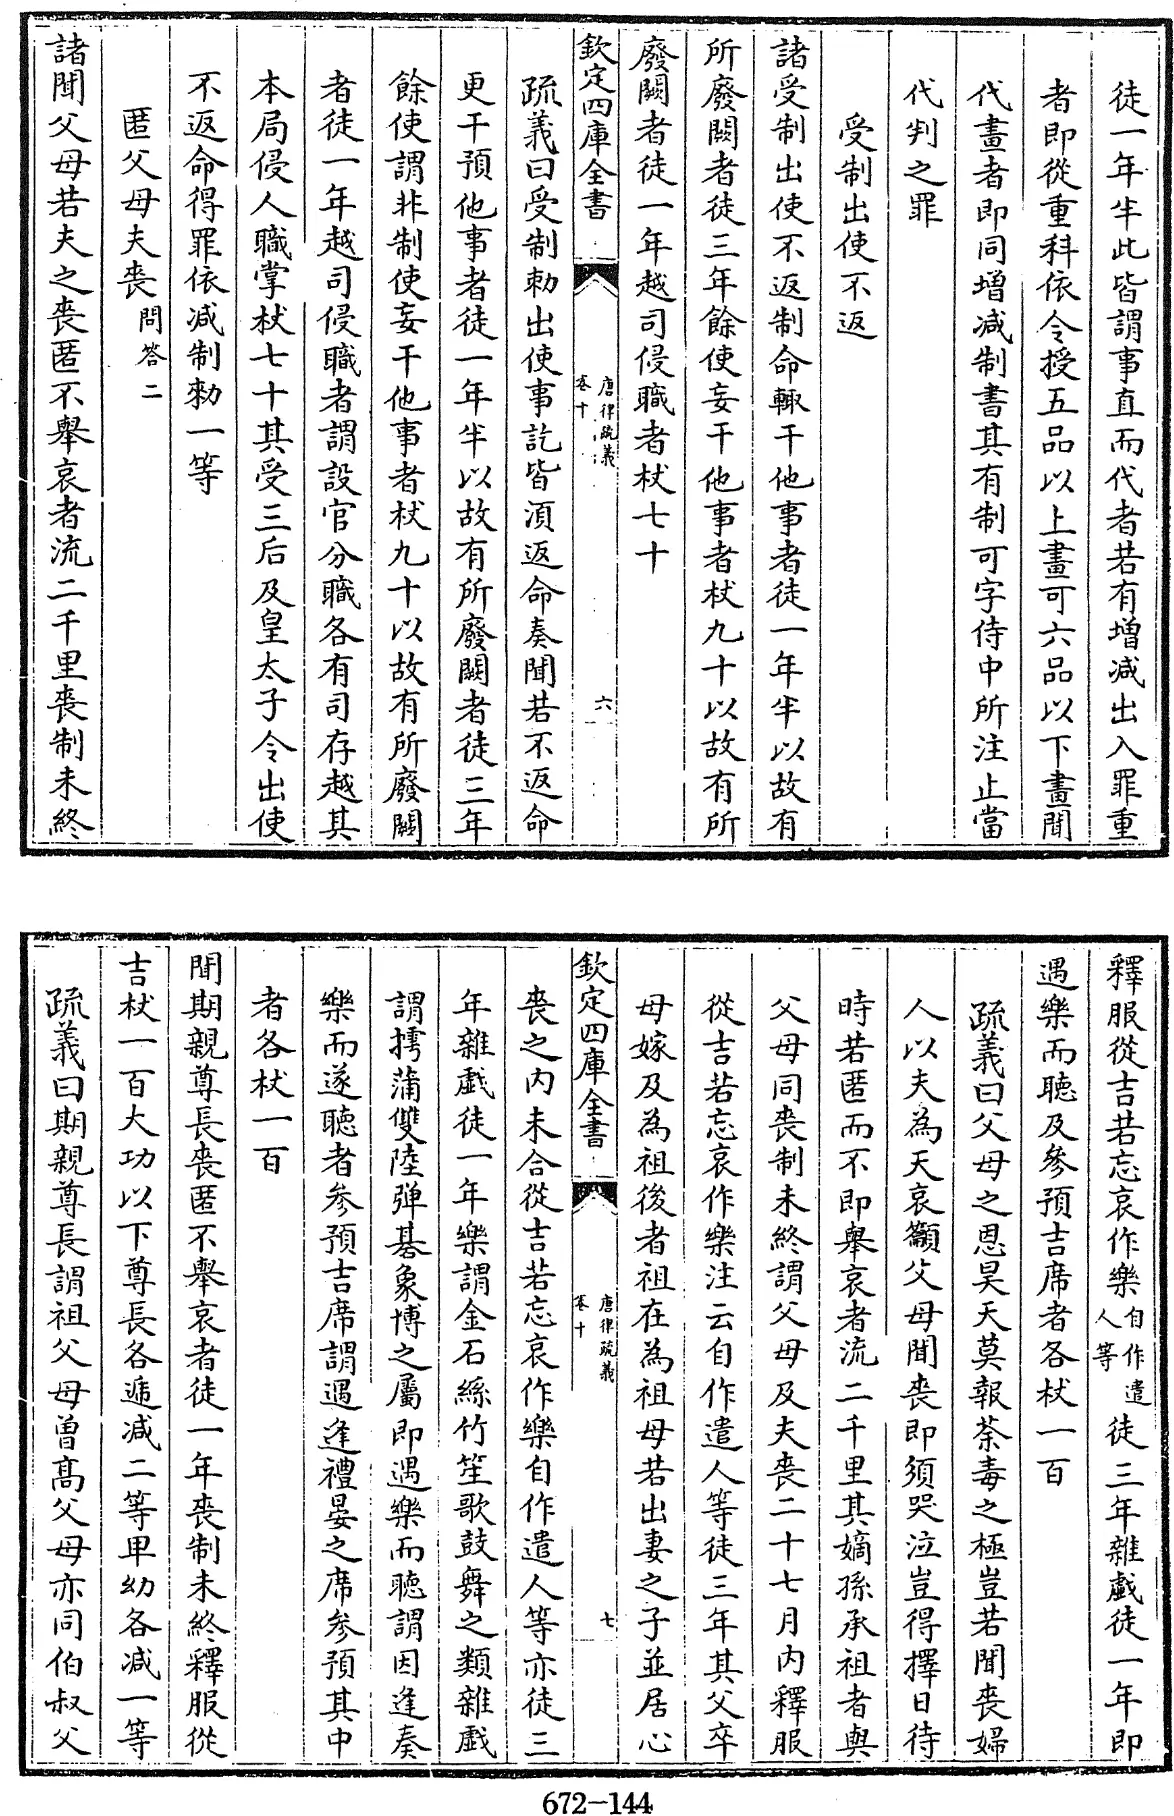 徒一年半此皆謂事直而代者若有増减出入罪重
者即從重科依令授五品以上畫可六品以下畫聞
代畫者即同増减制書其有制可字侍中所注止當
代判之罪
受制出使不返
諸受制出使不返制命輙干他事者徒一年半以故有
所廢闕者徒三年餘使妄干他事者杖九十以故有所
廢闕者徒一年越司侵職者杖七十
欽定四庫全書
唐律疏義
卷十
六
疏義曰受制勅出使事訖皆湏返命奏聞若不返命
更干預他事者徒一年半以故有所廢闕者徒三年
餘使謂非制使妄干他事者杖九十以故有所廢闕
者徒一年越司侵職者謂設官分職各有司存越其
本局侵人職掌杖七十其受三后及皇太子令出使
不返命得罪依减制勅一等
匿父母夫喪問答二
諸聞父母若夫之喪匿不舉哀者流二千里喪制未終
釋服從吉若忘哀作樂自作遣人等徒三年雜戲徒一年即
遇樂而聽及參預吉席者各杖一百
疏義曰父母之恩昊天莫報荼毒之極豈若聞喪婦
人以夫為天哀籲父母聞喪即須哭泣豈得擇日待
時若匿而不即舉哀者流二千里其嫡孫承祖者與
父母同喪制未終謂父母及夫喪二十七月内釋服
從吉若忘哀作樂注云自作遣人等徒三年其父卒
母嫁及為祖後者祖在為祖母若出妻之子並居心
欽定四庫全書
唐律疏義
卷十
七
喪之内未合從吉若忘哀作樂自作遣人等亦徒三
年雜戲徒一年樂謂金石絲竹笙歌鼓舞之類雜戲
謂摴蒲雙陸彈碁象博之屬即遇樂而聽謂因逢奏
樂而遂聽者參預吉席謂遇逢禮晏之席參預其中
者各杖一百
聞期親尊長喪匿不舉哀者徒一年喪制未終釋服從
吉杖一百大功以下尊長各遞减二等卑幼各减一等
疏義曰期親尊長謂祖父母曽髙父母亦同伯叔父
672-144